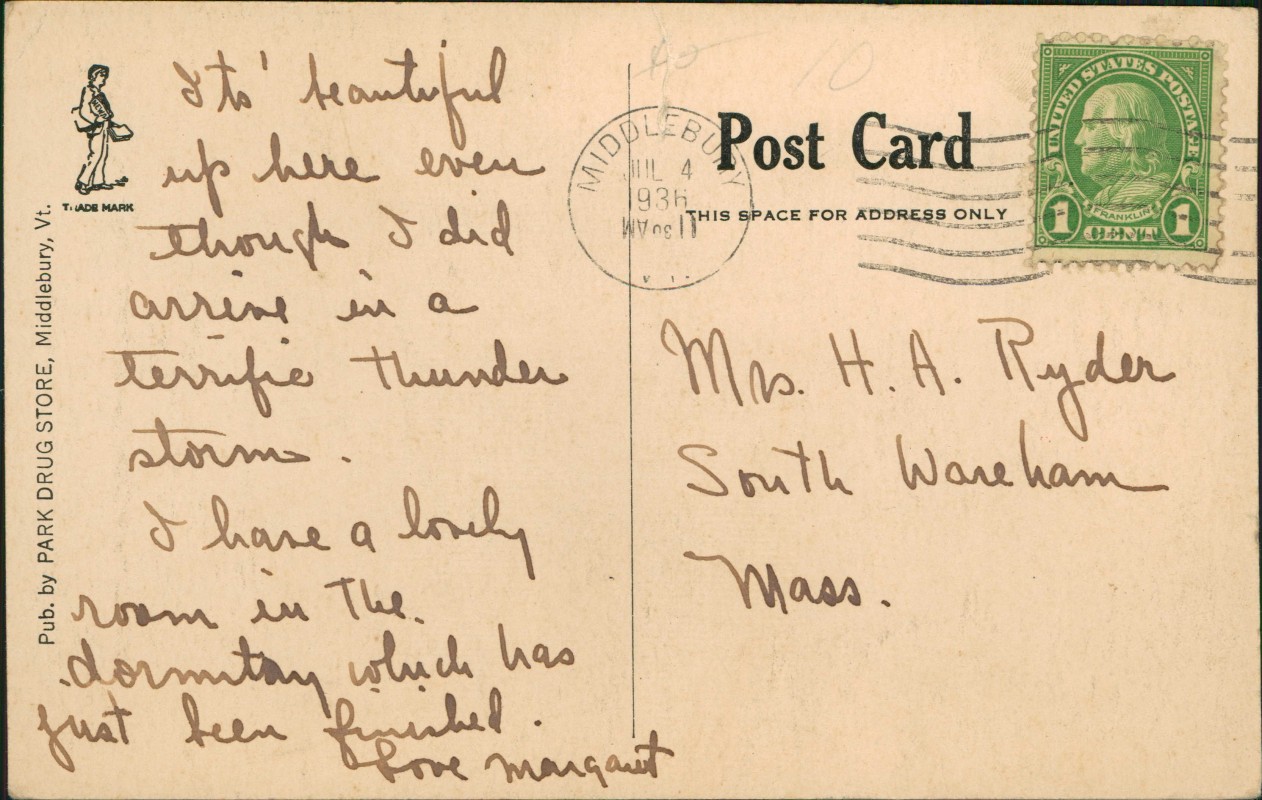 Its' beautiful
up here even
though I did
arrive in a
terrific thunder
storm.
I have a lovely
room in the
dormitory which has
just been finished.
Love Margaret
TRADE MARK
Pub. by PARK DRUG STORE, Middlebury, Vt.
40
10
MIDDLEBURY
JUL 4
1936
11 30 AM
Post Card
THIS SPACE FOR ADDRESS ONLY
UNITED STATES POSTAGE
FRANKLIN
1 CENT 1
Mrs. H. A. Ryder
South Wareham
Mass.